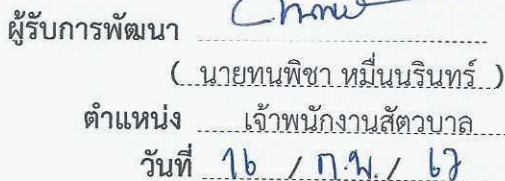 ผู้รับการพัฒนา
( นายทนพิชา หมื่นนรินทร์ )
ตำแหน่ง เจ้าพนักงานสัตวบาล
วันที่ 16 / ก.พ. / 67